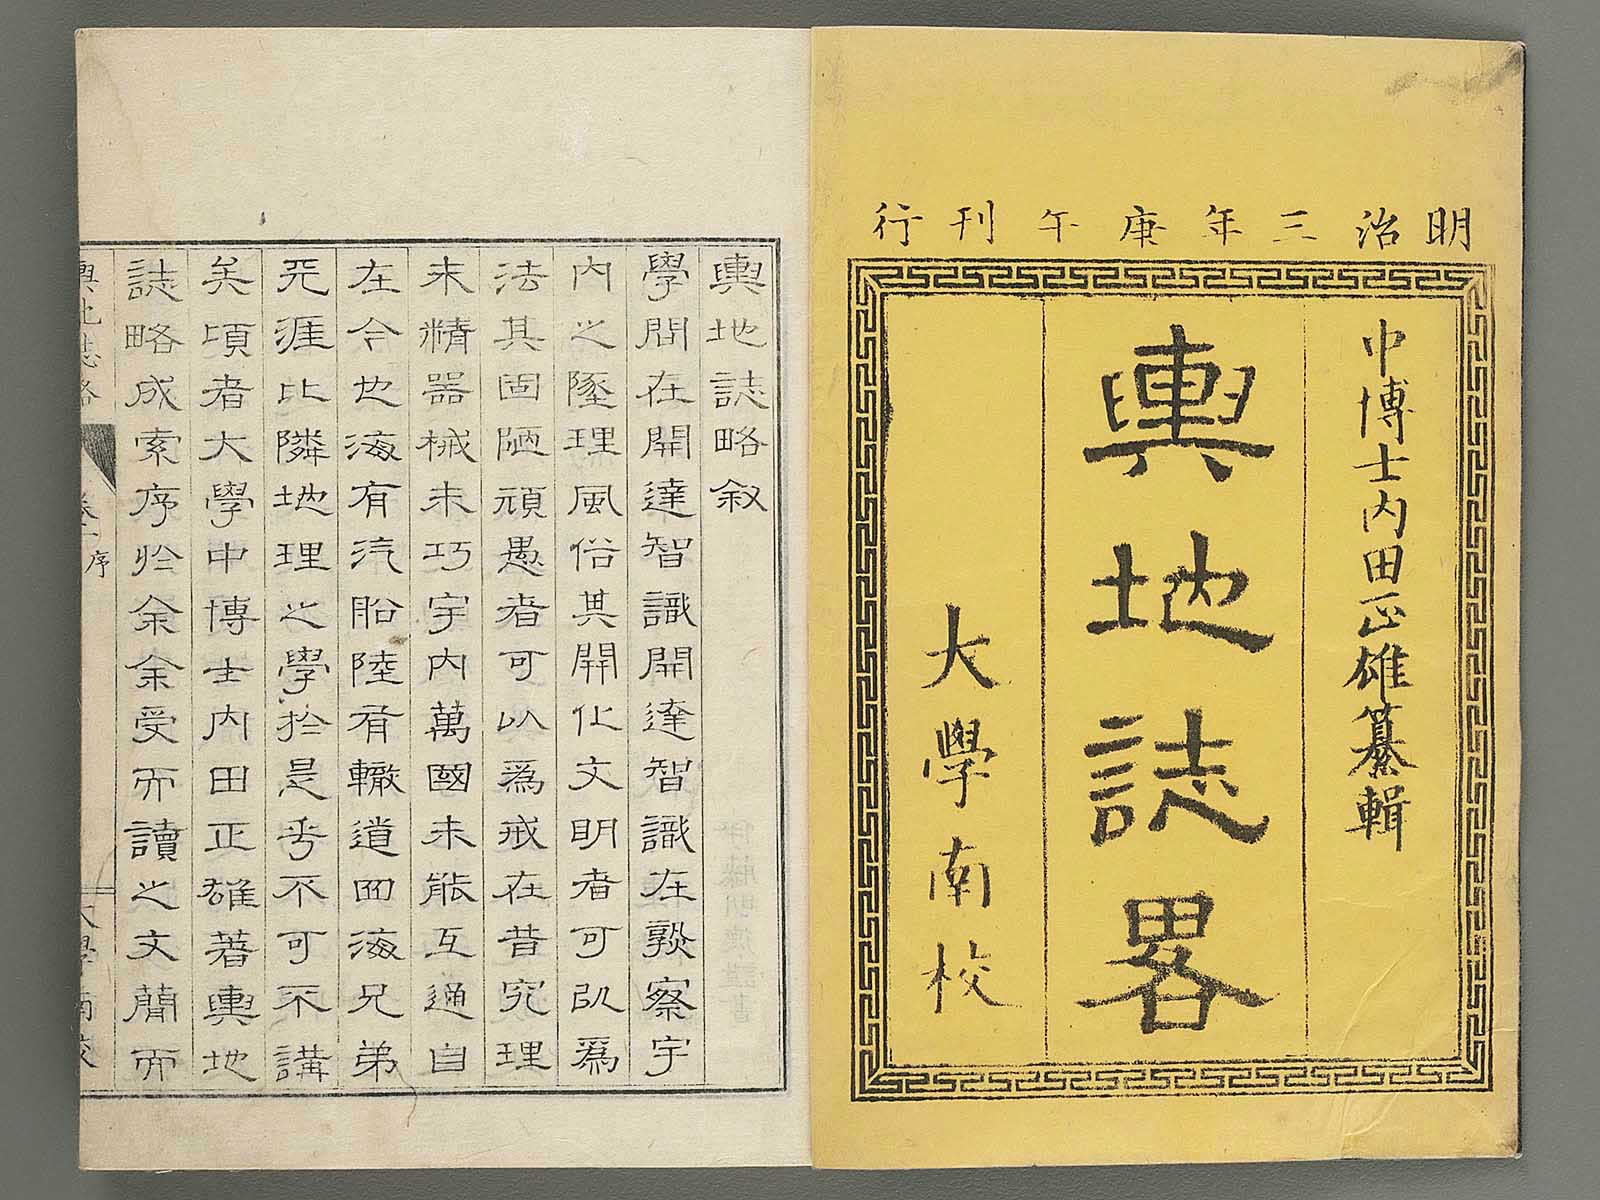 明治三年庚午刊行
中博士内田正雄纂輯
輿地誌畧
大學南校
輿地誌略叙
學問在開達智識開達智識在察宇
内之理風俗其開化文明者可以爲
法其固陋頑愚者可以爲戒在昔究理
未精器械未巧宇内萬國未能互通自
在今也海有汽船陸有轍道四海兄弟
天涯比隣地理之學於是乎不可不講
矣頃者大學中博士内田正雄著輿地
誌略成索序於余余受而讀之文簡而
輿地誌略
卷一序
大學南校